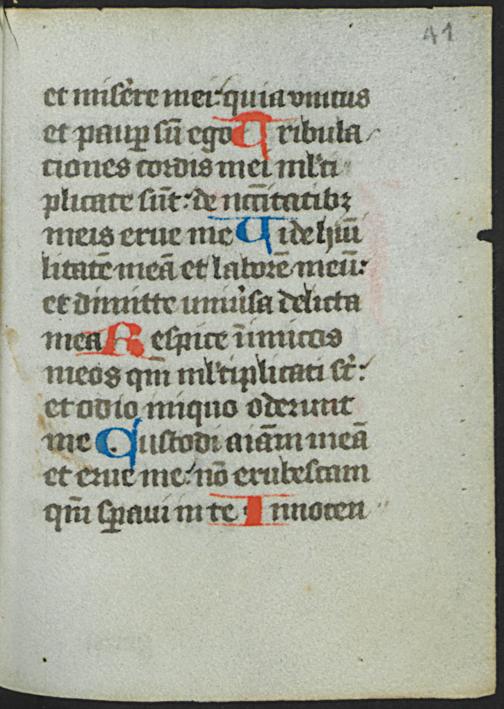 41
et misere mei: quia vnicus
et paup sũ ego Tribula
ciones cordis mei mlti
plicate sũt: de nc̃citatibꝫ
meis erue me Vide hũi
litatẽ meã et laborẽ meũ:
et dimitte uniũsa delicta
mea Respice inimicos
meos qm̃ mltiplicati st̃:
et odio iniquo oderunt
me Custodi aiãm meã
et erue me: nõ erubescam
qm̃ spaui in te Innocen